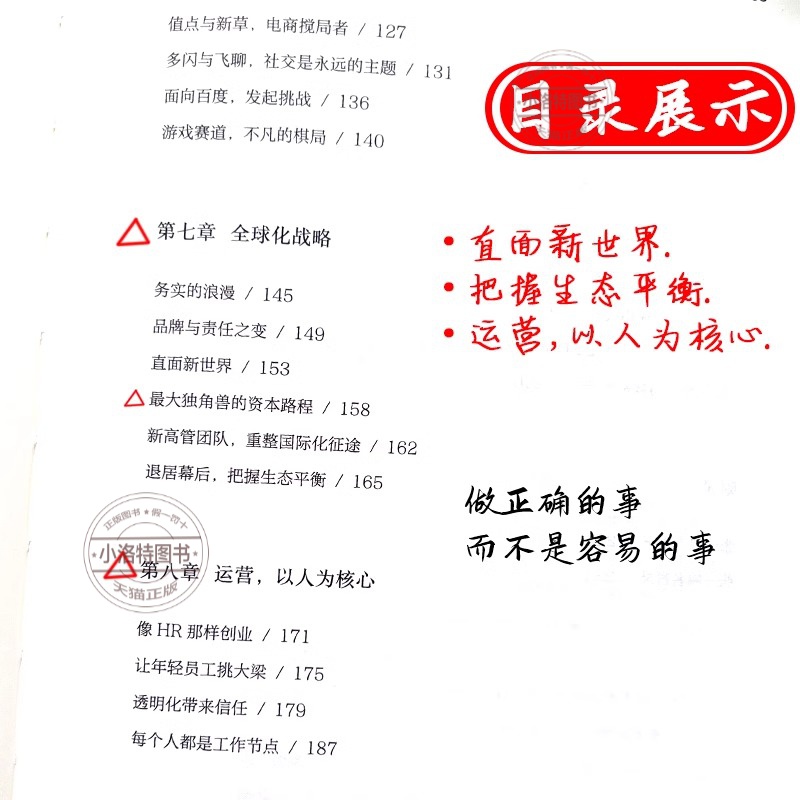 值点与新草，电商搅局者 / 127
多闪与飞聊，社交是永远的主题 / 131
面向百度，发起挑战 / 136
游戏赛道，不凡的棋局 / 140
目录展示
小洛特图书
第七章 全球化战略
务实的浪漫 / 145
品牌与责任之变 / 149
直面新世界 / 153
最大独角兽的资本路程 / 158
新高管团队，重整国际化征途 / 162
退居幕后，把握生态平衡 / 165
• 直面新世界.
• 把握生态平衡.
• 运营,以人为核心.
做正确的事
而不是容易的事
正版图书★假一罚十
小洛特图书
天猫正版
第八章 运营，以人为核心
像 HR 那样创业 / 171
让年轻员工挑大梁 / 175
透明化带来信任 / 179
每个人都是工作节点 / 187